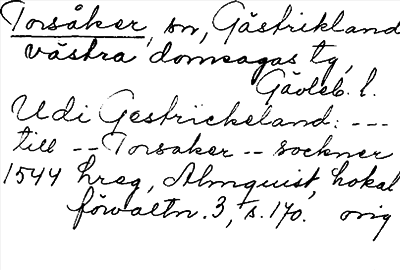 Torsåker, sn, Gästrikland
västra domsagas tg,
Gävleb. l.
Udi Gestrickeland: ---
till -- Torsaker -- sockner
1544 hreg, Almquist, Lokal
förvaltn. 3, s. 170. orig